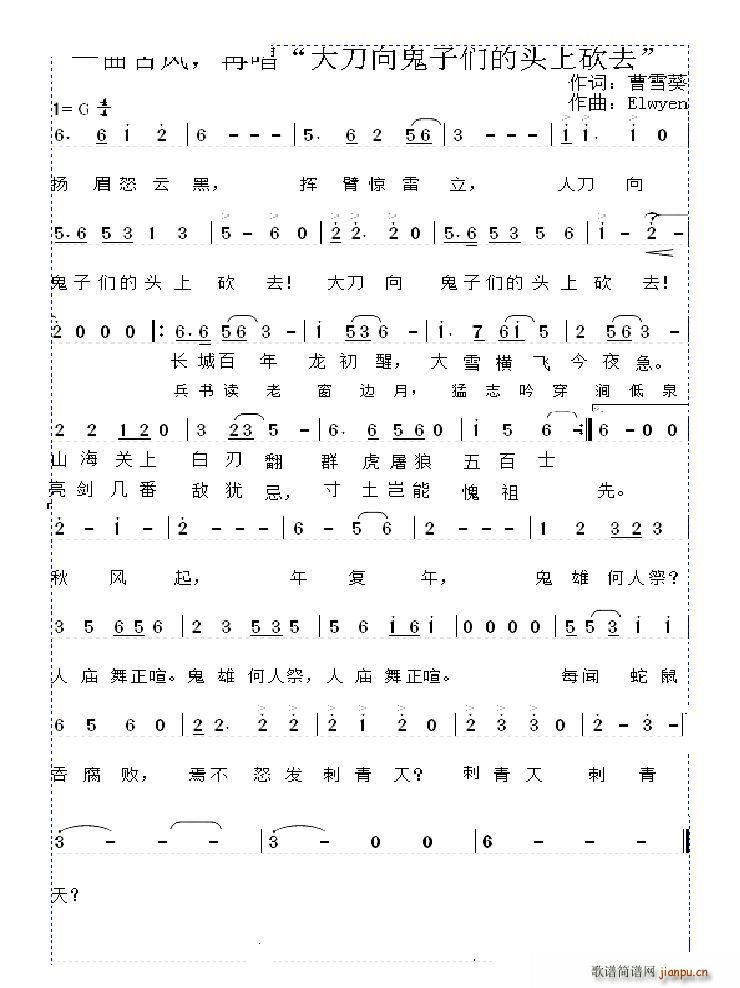 一曲古风，再唱“大刀向鬼子们的头上砍去”
作词：曹雪葵
作曲：Elwyen
1=G 4/4
6. 6 i 2 | 6 - - - | 5. 6 2 56 | 3 - - - | i i. i 0
扬眉怒云黑，挥臂惊雷立，大刀向
5.6 53 1 3 | 5 - 6 0 | 2 2. 2 0 | 5.6 53 5 6 | i - 2 -
鬼子们的头上砍去！大刀向鬼子们的头上砍去！
2 0 0 0 |: 6.6 56 3 - | i 536 - | i. 7 6i 5 | 2 56 3 -
长城百年龙初醒，大雪横飞今夜急。
兵书读老窗边月，猛志吟穿涧低泉
2 2 120 | 3 23 5 - | 6. 6 560 | i 5 6 - :| 6 - 0 0
山海关上白刃翻群虎屠狼五百士
亮剑几番敌犹忌，寸土岂能愧祖先。
2 - i - | 2 - - - | 6 - 56 | 2 - - - | 1 2 323
秋风起，年复年，鬼雄何人祭？
3 5 656 | 2 3 535 | 5 6 i6i | 0 0 0 0 | 55 3 i i
人庙舞正喧。鬼雄何人祭，人庙舞正喧。每闻蛇鼠
6 5 6 0 | 2 2. 2 2 | 2 1 2 0 | 2 3 3 0 | 2 - 3 -
吞腐败，焉不怒发刺青天？刺青天刺青
3 - - - | 3 - 0 0 | 6 - - -
天？
歌谱简谱网
jianpu.cn